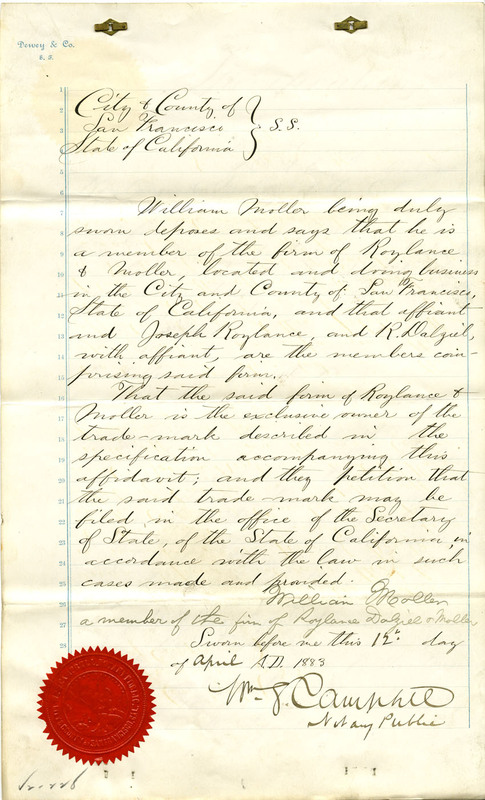 Dewey & Co.
S. F.
1
2
3
4
5
6
7
8
9
10
11
12
13
14
15
16
17
18
19
20
21
22
23
24
25
26
27
28
City & County of
San Francisco
State of California
} S.S.
William Moller being duly
sworn deposes and says that he is
a member of the firm of Roylance
& Moller, located and doing business
in the City and County of San Francisco,
State of California, and that affiant
and Joseph Roylance, and R. Dalziel,
with affiant, are the members com-
prising said firm.
That the said firm of Roylance &
Moller is the exclusive owner of the
trade-mark described in the
specification accompanying this
affidavit; and they petition that
the said trade-mark may be
filed in the office of the Secretary
of State, of the State of California, in
accordance with the law in such
cases made and provided.
William Moller
a member of the firm of Roylance Dalziel & Moller
Sworn before me this 12th day
of April A.D. 1883
Wm. F. Campbell
Notary Public